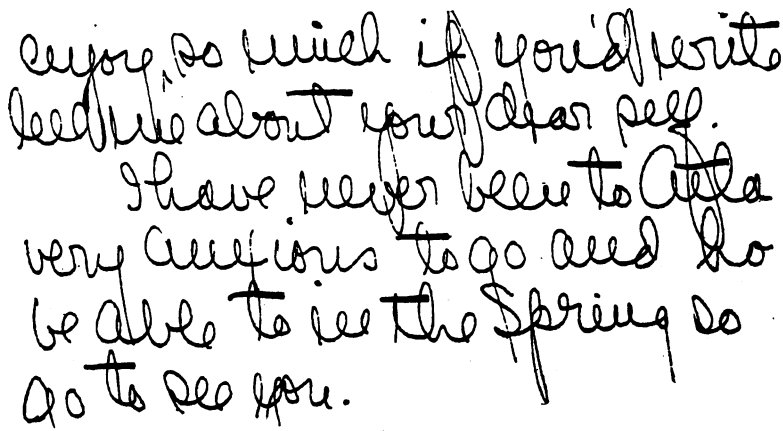 enjoy so much if you'd write
me about your dear self.
I have never been to Atla
very anxious to go and ho
be able to in the Spring so
go to see you.